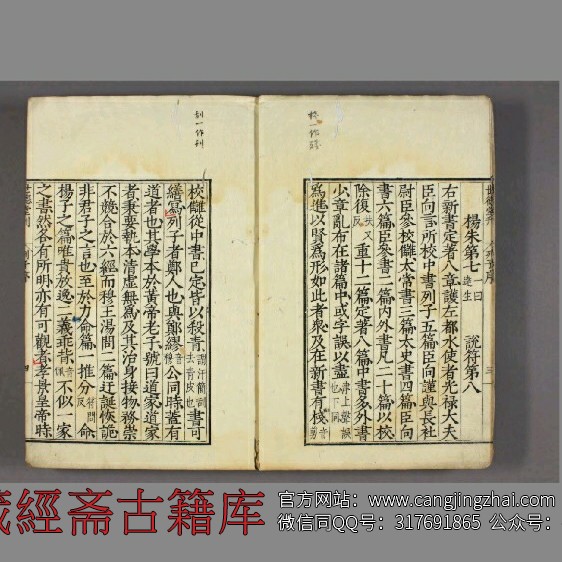 楊朱第七 一曰達生 說符第八
右新書定著八章護左都水使者光祿大夫
臣向言所校中書列子五篇臣向謹與長社
尉臣參校讎太常書三篇太史書四篇臣向
書六篇臣參書二篇內外書凡二十篇以校
除復扶又反重十二篇定著八篇中書多外書
少章亂布在諸篇中或字誤以盡津上聲誤也下同
為進以賢為形如此者眾及在新書有棧音剪
校讎從中書已定皆以殺青謂汗簡刮去青皮也書可
繕寫列子者鄭人也與鄭繆音穆公同時蓋有
道者也其學本於黃帝老子號曰道家道家
者秉要執本清虛無為及其治身接物務崇
不競合於六經而穆王湯問二篇迂誕恢詭
非君子之言也至於力命篇一推分符問反命
楊子之篇唯貴放逸二義乖背音佩不似一家
之書然各有所明亦有可觀者孝景皇帝時
藏經斋古籍库
官方网站：www.cangjingzhai.com
微信同QQ号：317691865 公众号：